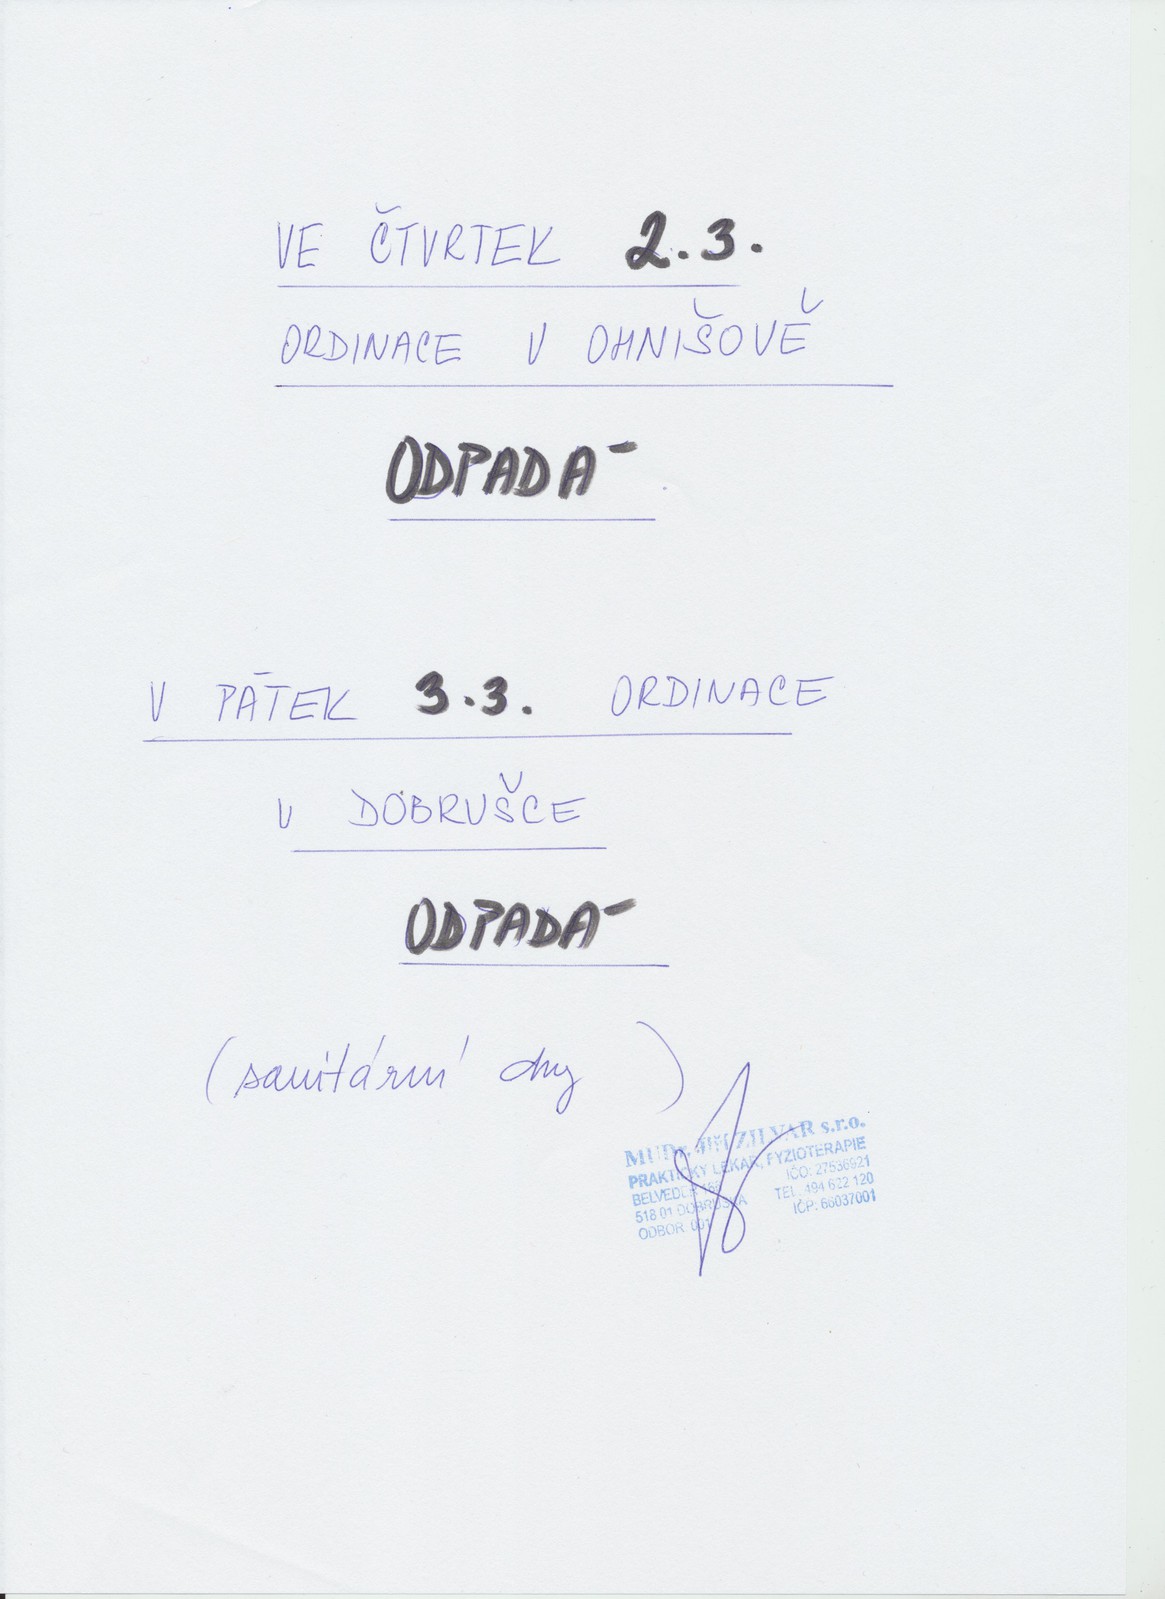 VE ČTVRTEK 2.3.
ORDINACE V OHNIŠOVĚ
ODPADÁ
V PÁTEK 3.3. ORDINACE
V DOBRUŠCE
ODPADÁ
(sanitární dny)
MUDr. JIŘÍ ZILVAR s.r.o.
PRAKTICKÝ LÉKAŘ, FYZIOTERAPIE
BELVEDER IČO: 27536921
518 01 DOBRUŠKA TEL. 494 622 120
ODBOR 001 IČP: 66037001